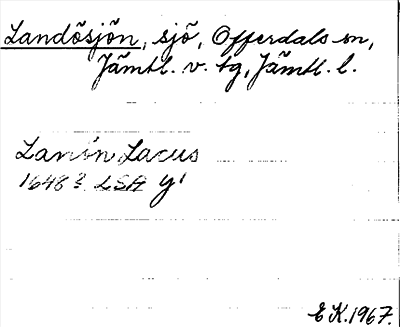 Landösjön, sjö, Offerdals sn,
Jämtl. v. tg, Jämtl. l.
Lanön Lacus
1648? LSA y¹
E K. 1967.